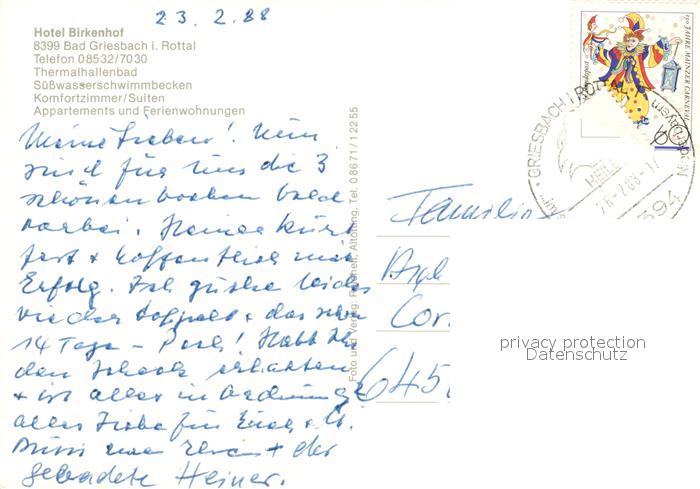 23.2.88
Hotel Birkenhof
8399 Bad Griesbach i. Rottal
Telefon 08532/7030
Thermalhallenbad
Süßwasserschwimmbecken
Komfortzimmer/Suiten
Appartements und Ferienwohnungen
Meine Lieben! Nun
sind für uns die 3
schönen Wochen bald
vorbei. Heiner kurt
fest + hoffentlich mit
Erfolg. Ich gucke leider
wieder doppelt + das schon
14 Tage - Pech! Habt Ihr
den Scheck erhalten
+ ist alles in Ordnung?
alles Liebe für Euch
der
gebadete Heiner.
Foto und Verlag: Altötting, Tel. 08671/12255
Familie
Cor
645
150 JAHRE MAINZER CARNEVAL
GRIESBACH I ROTTAL
HEIL
26.-2.88-17
8394
privacy protection
Datenschutz